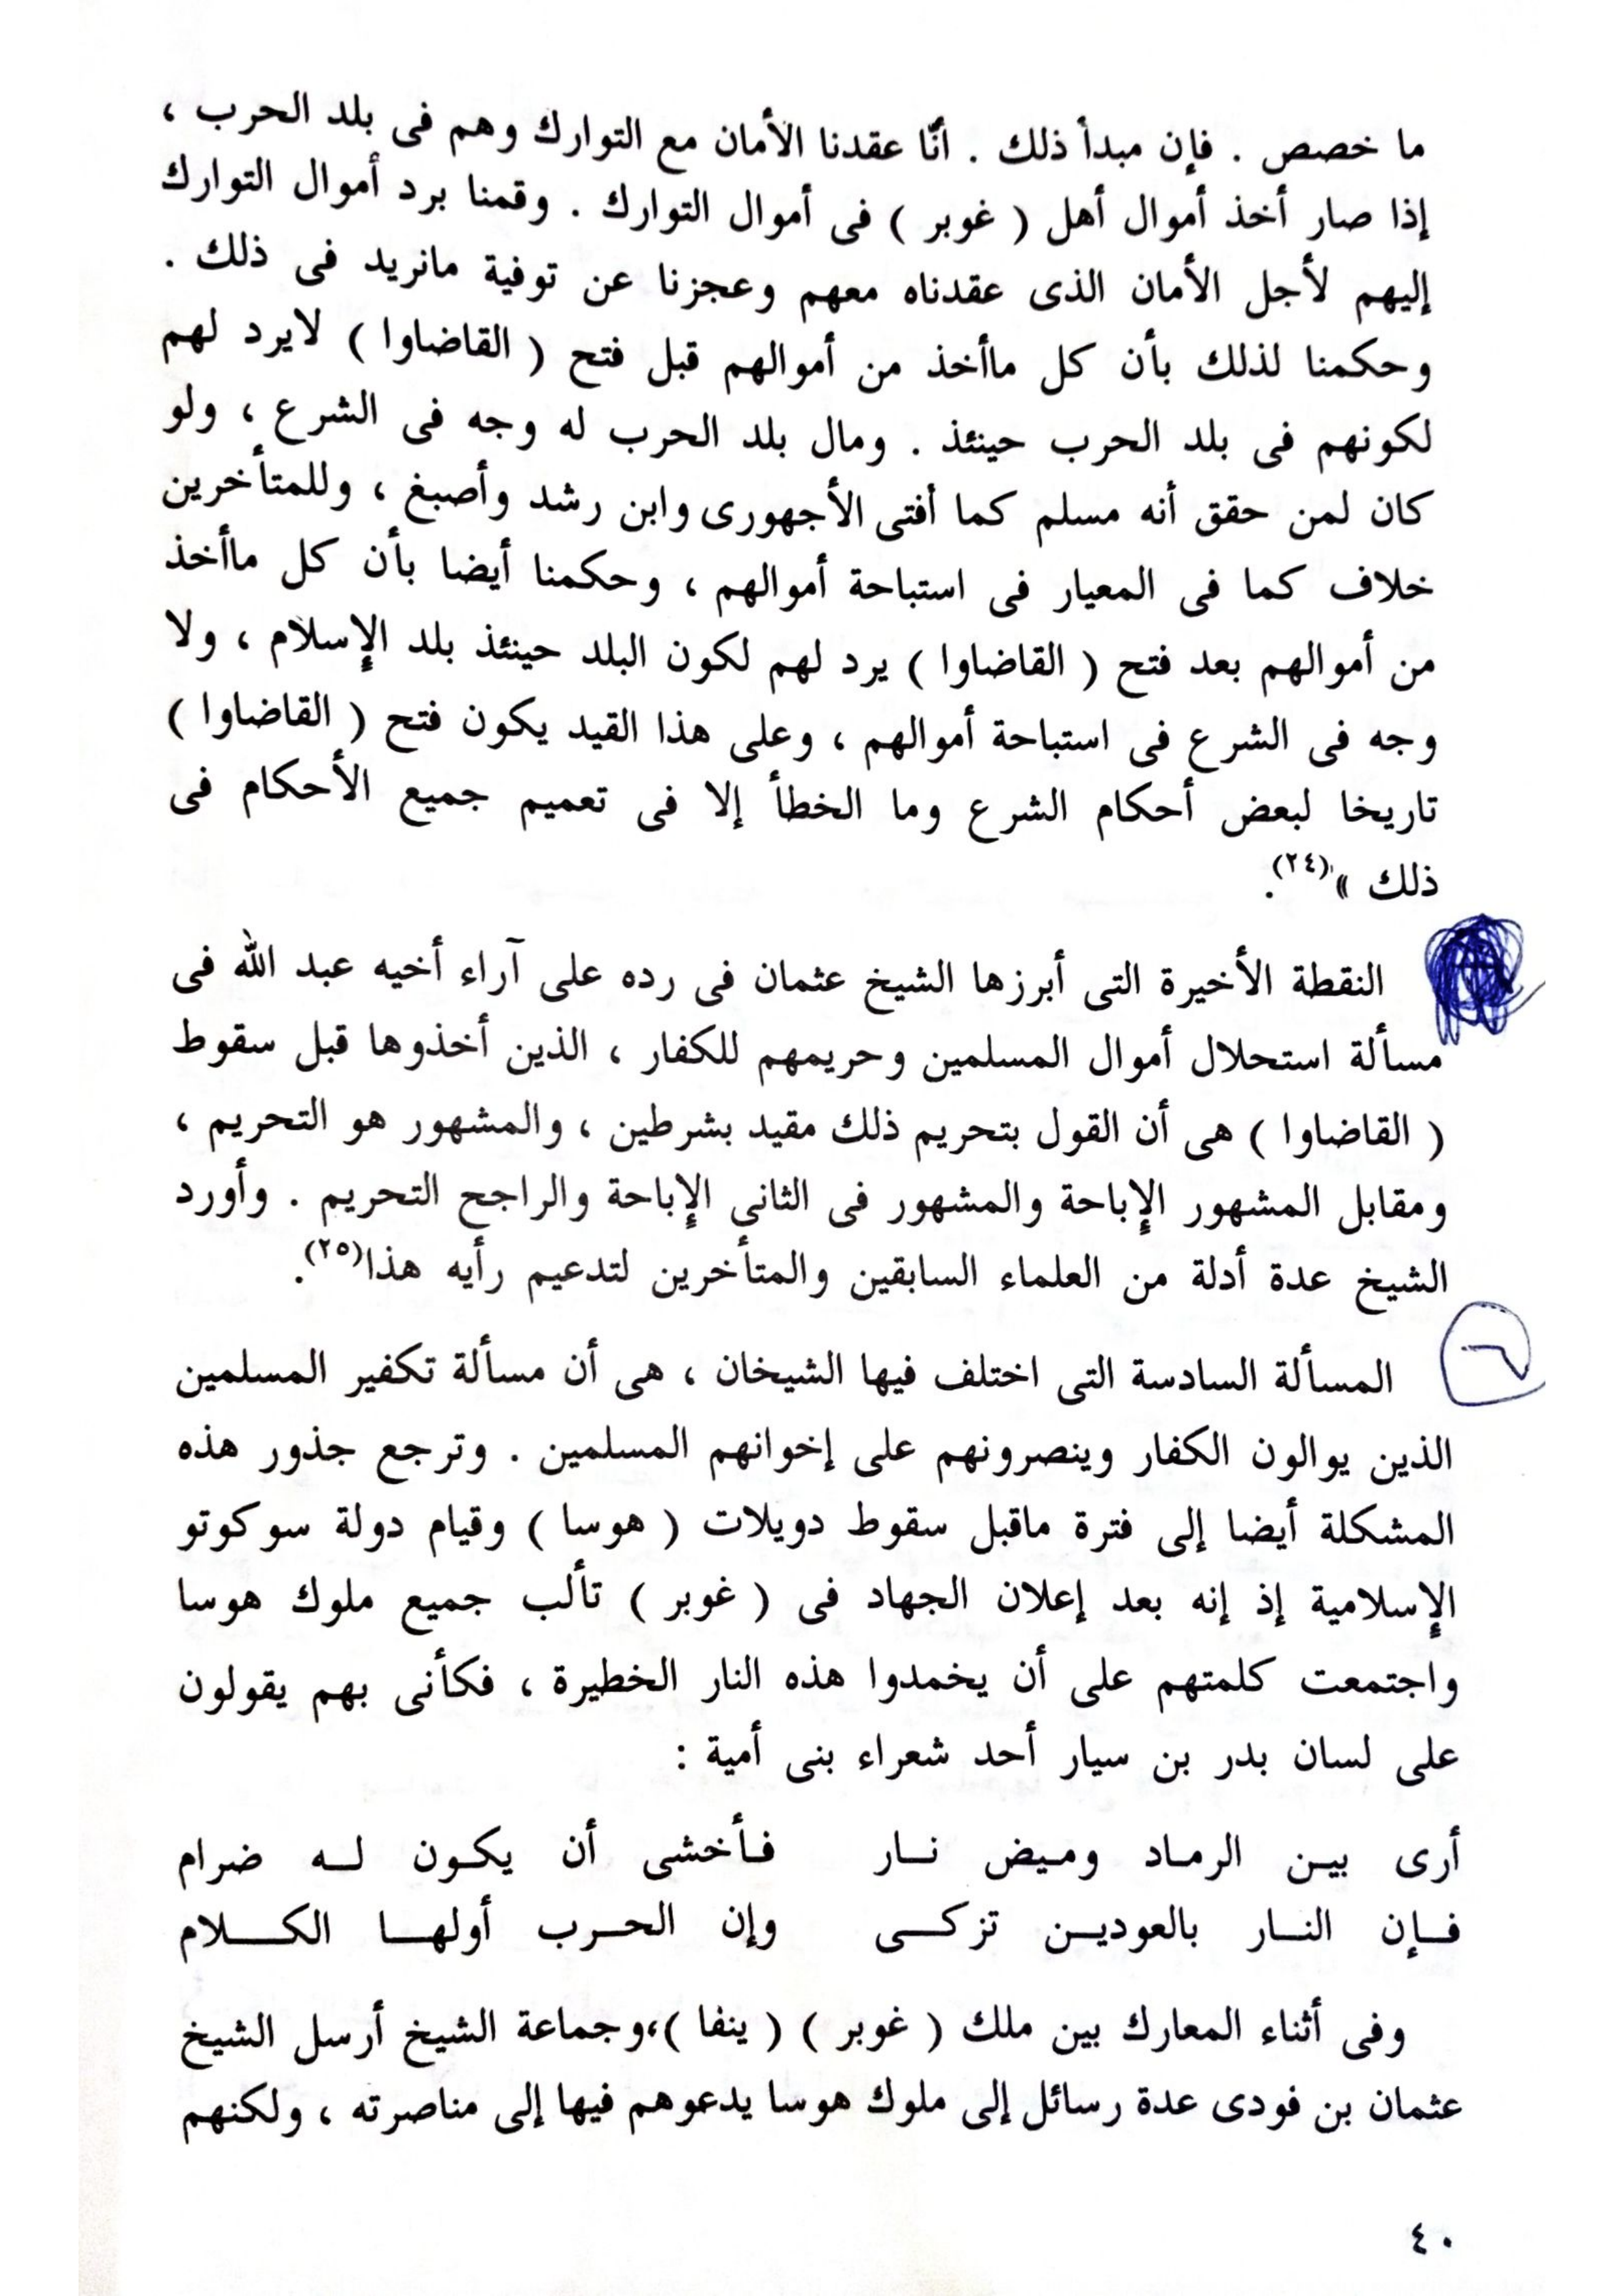 ما خصص . فإن مبدأ ذلك . أنّا عقدنا الأمان مع التوارك وهم فى بلد الحرب ،
إذا صار أخذ أموال أهل ( غوبر ) فى أموال التوارك . وقمنا برد أموال التوارك
إليهم لأجل الأمان الذى عقدناه معهم وعجزنا عن توفية مانريد فى ذلك .
وحكمنا لذلك بأن كل ماأخذ من أموالهم قبل فتح ( القاضاوا ) لايرد لهم
لكونهم فى بلد الحرب حينئذ . ومال بلد الحرب له وجه فى الشرع ، ولو
كان لمن حقق أنه مسلم كما أفتى الأجهورى وابن رشد وأصبغ ، وللمتأخرين
خلاف كما فى المعيار فى استباحة أموالهم ، وحكمنا أيضا بأن كل ماأخذ
من أموالهم بعد فتح ( القاضاوا ) يرد لهم لكون البلد حينئذ بلد الإسلام ، ولا
وجه فى الشرع فى استباحة أموالهم ، وعلى هذا القيد يكون فتح ( القاضاوا )
تاريخا لبعض أحكام الشرع وما الخطأ إلا فى تعميم جميع الأحكام فى
ذلك »(٢٤).
النقطة الأخيرة التى أبرزها الشيخ عثمان فى رده على آراء أخيه عبد الله فى
مسألة استحلال أموال المسلمين وحريمهم للكفار ، الذين أخذوها قبل سقوط
( القاضاوا ) هى أن القول بتحريم ذلك مقيد بشرطين ، والمشهور هو التحريم ،
ومقابل المشهور الإباحة والمشهور فى الثانى الإباحة والراجح التحريم . وأورد
الشيخ عدة أدلة من العلماء السابقين والمتأخرين لتدعيم رأيه هذا(٢٥).
٦
المسألة السادسة التى اختلف فيها الشيخان ، هى أن مسألة تكفير المسلمين
الذين يوالون الكفار وينصرونهم على إخوانهم المسلمين . وترجع جذور هذه
المشكلة أيضا إلى فترة ماقبل سقوط دويلات ( هوسا ) وقيام دولة سوكوتو
الإسلامية إذ إنه بعد إعلان الجهاد فى ( غوبر ) تألب جميع ملوك هوسا
واجتمعت كلمتهم على أن يخمدوا هذه النار الخطيرة ، فكأنى بهم يقولون
على لسان بدر بن سيار أحد شعراء بنى أمية :
أرى بين الرماد وميض نار فأخشى أن يكون له ضرام
فإن النار بالعودين تزكى وإن الحرب أولها الكلام
وفى أثناء المعارك بين ملك ( غوبر ) ( ينفا )،وجماعة الشيخ أرسل الشيخ
عثمان بن فودى عدة رسائل إلى ملوك هوسا يدعوهم فيها إلى مناصرته ، ولكنهم
٤٠